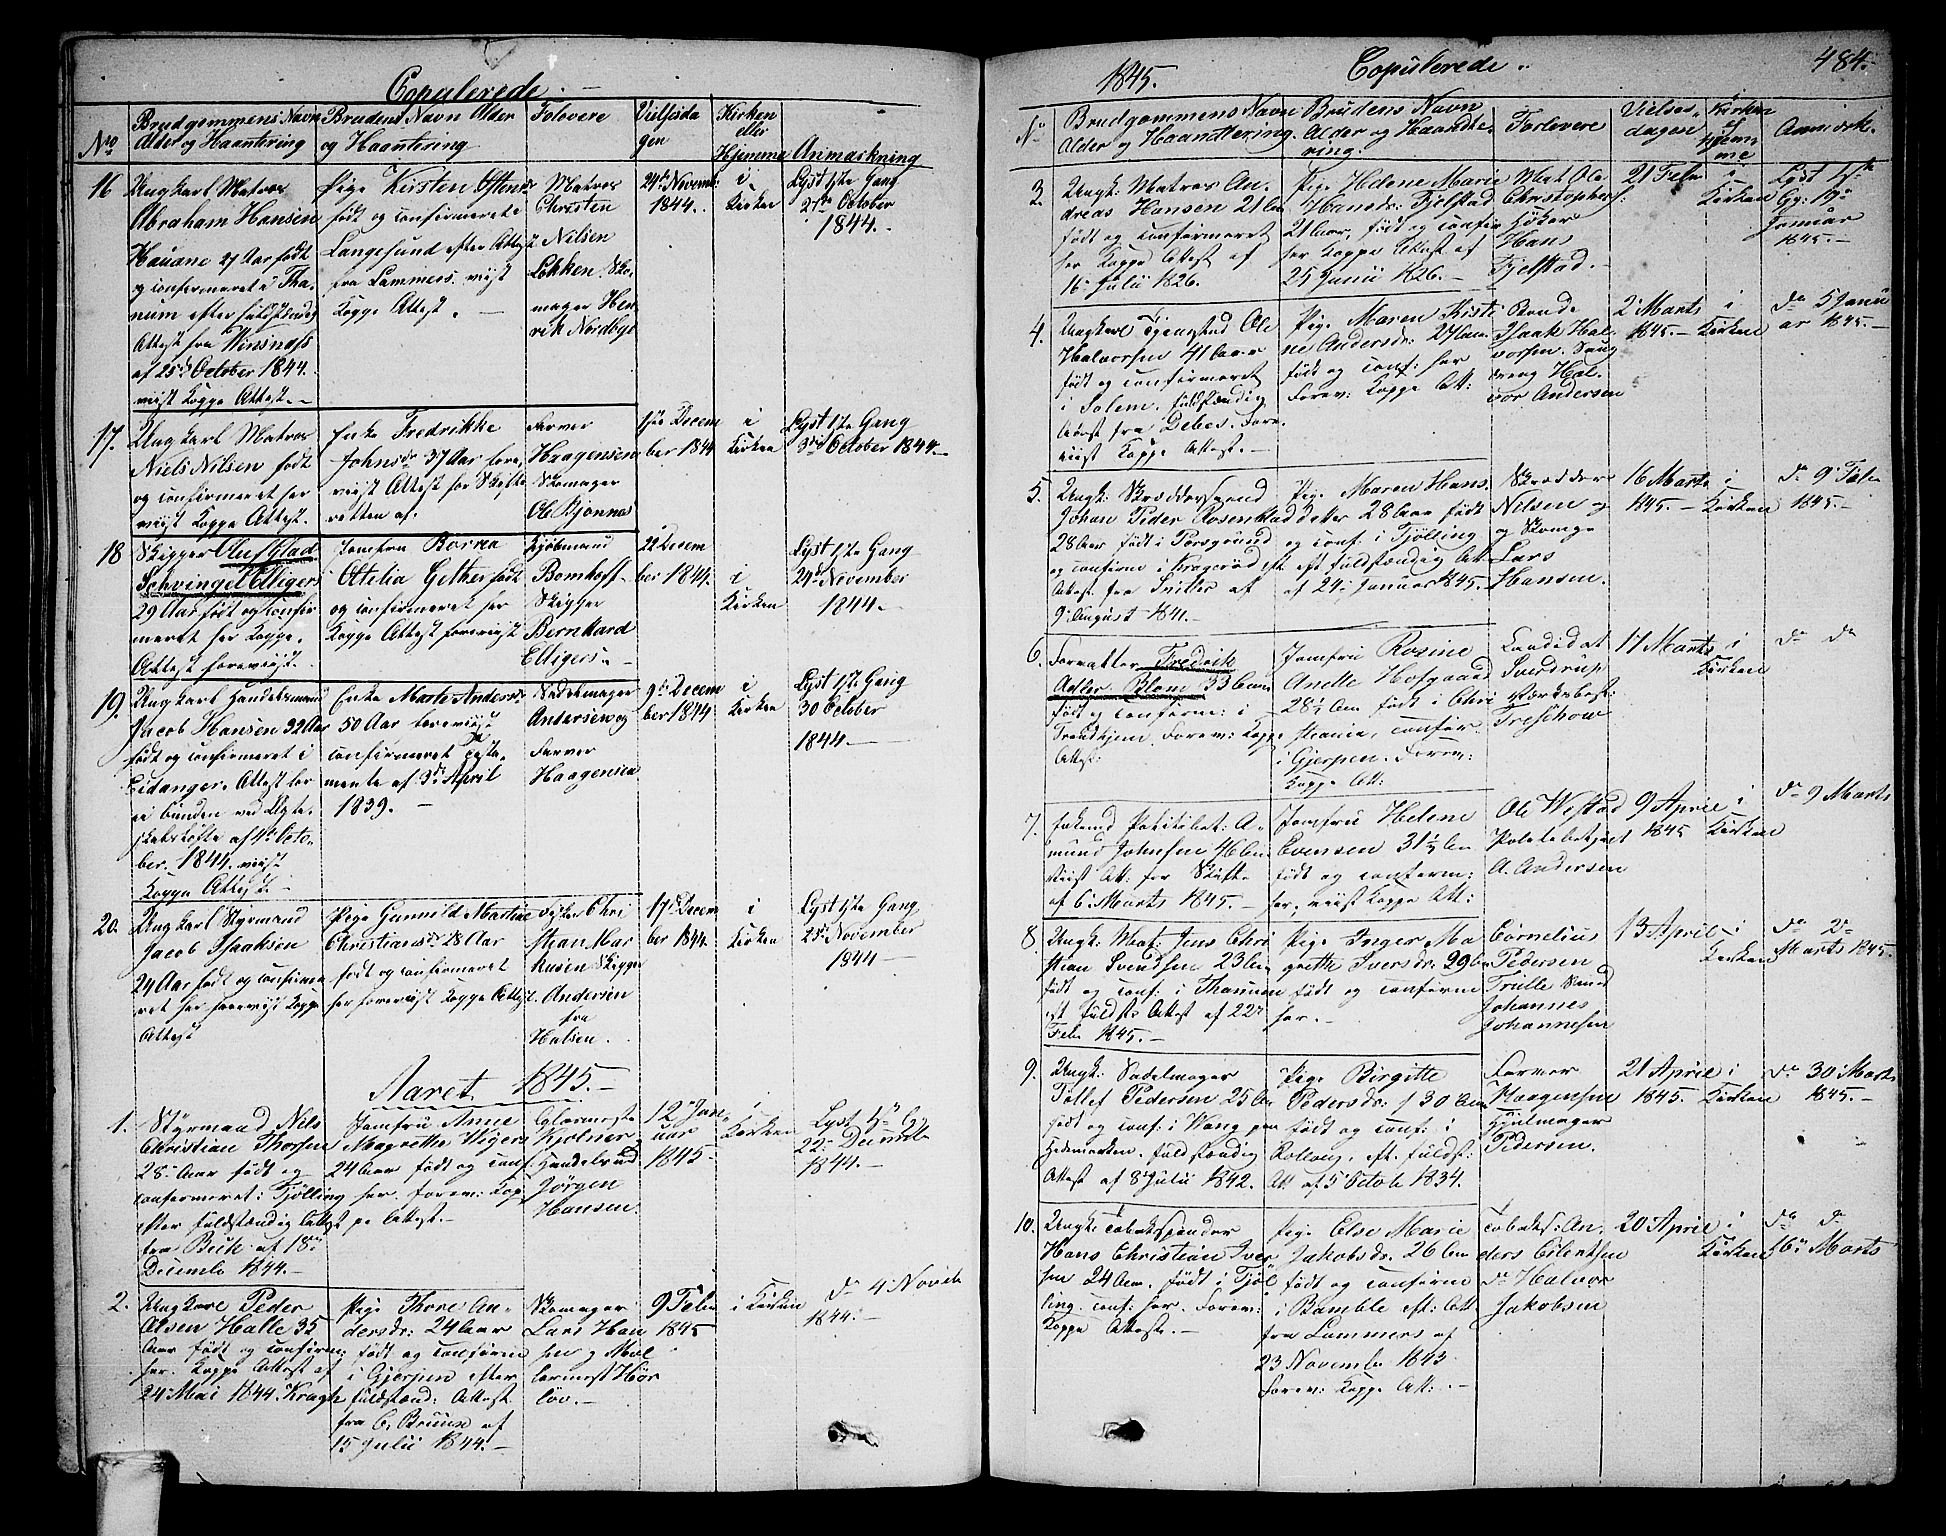 Copulerede. —
No
Brudgommens Navn
Alder og Haantering
Brudens Navn Alder
og Haantering
Folovere
Vielsesda
gen
Kirken
eller
Hjemme
Anmærkning
16
Ungkarl Matros
Abraham Hansen
Hauane 27 Aar født
og confirmeret i Tha-
num efter fuldstændig
Attest fra Winsnæss
af 25de October 1844.
viist Koppe Attest. -
Pige Kirsten Ostensdr
født og confirmerete
Langesund efter Attest
fra Lammers. viist
Koppe Attest. —
Matros
Christen
Nilsen
Løkken Sko-
mager Hen-
rik Nordbye
24de Novembr
1844.
i
Kirken
Lyst 1ste Gang
October
1844. -
17.
Ungkarl Matros
Niels Nilsen født
og confirmeret her
viist Koppe Attest.
Enke Fredrikke
Johnsdr 37 Aar fore-
viist Attest for Skifte
retten af.
Farver
Haagensen
Skomager
Ole Bjønnes
1ste Decem
ber 1844
i
Kirken
Lyst 1ste Gang
October 1844. -
18
Skipper Aufglad
Schvingel Elligers
29 Aar født og confir
meret her Koppe.
Attest foreviist.
Jomfru Borrea
Ottelia Gether født
og confirmeret her
Koppe Attest foreviist
Kjøbmand
Bomhoff
Skipper
Bernhard
Elligers. -
22 Decem
ber 1844.
i
Kirken
Lyst 1ste Gang
24de November
1844. -
19.
Ungkarl Handelsmand
Jacob Hansen 32 Aar
født og confirmeret i
Eidanger. Attest for
ei bunden ved Ægte-
skabsløfte af 4de Octo-
ber. 1844. viist
Koppe Attest. -
Enke Marte Andersdr
50 Aar foreviist
confirmeret
mente af 3de April
1839. —
Sadelmager
Andersen og
Farver
Haagensen
9de Decem
ber 1844
i
Kirken
Lyst 1ste Gang
30 October
1844. —
20.
Ungkarl Styrmand
Jacob Isaaksen
24 Aar født og confirme
ret her foreviist Koppe
Attest
Pige Gunnild Martine
Christiansdr 28 Aar
født og confirmeret
her foreviist Koppe Attest.
Fisker Chri
stian Mar
kusen Skipper
Andersen
fra
Halsen.
17de Decem
ber 1844.
i
Kirken
Lyst 1ste Gang
25de November
1844 -
Aaret 1845. -
1.
Styrmand Nils
Christian Thorsen
28 Aar født og
confirmeret i Tjølling
efter fuldstændig Attest
fra Beck af 18de
Decemb 1844. -
Jomfru Anne
Magrethe Wigers
24 Aar født og conf.
her. forev: Kop-
pe Attest. -
Glarmester
Kjølner
Handelsmd
Jørgen
Hansen.
12 Jan-
uar
1845
i
Kirken
Lyst 1ste Gg
22 Decemb
1844. -
2.
Ungkarl Peder
Olsen Halle 35
Aar født og confirm:
her. Koppe Attest af
24 Mai 1844. Kragh
Pige Thore An-
dersdr: 24 Aar
født og confirme
i Gjerpen efter
fuldstænd: Attest
fra C. Bruun af
15 Julii 1844. -
Skomager
Lars Han
sen og Møl
lermest Hør
løv. -
9 Febr
1845
i Kirken
do 4 Novbr
1844. -
1845.
Copulerede..
484.
No
Brudgommens Navn
Alder og Haandtering.
Brudens Navn
Alder og Haandte-
ring.
Forlovere
Vielses-
dagen
Kirken
el
Hjem-
me
Anmærk.
3.
Ungk: Matros An-
dreas Hansen 21 Aar
født og confirmeret
her Koppe Attest af
16 Julii 1826.
Pige Helene Marie
Hansdr: Fjelstad
21 Aar, født og confir
her Koppe Attest af
25 Junii 1826. -
Mat Ole
Christophers
Høker
Hans
Fjelstad. -
21 Febr
i
Kirken
Lyst 1ste
Gg: 19de
Januar
1845. -
4.
Ungkarl Tjenestkd Ole
Halvorsen 41 Aar
født og confirmeret
i Solem. fuldstændig
Attest fra Debes. Fore-
viist Koppe Attest. -
Pige Maren Kisti
ne Andersdr: 27 Aar
født og conf: her
Forev: Koppe Att:
Bonde
Isaak Hal-
vorsen.
Hal-
vor Andersen
2 Marts
1845. -
i
Kirken
do 5 Janu
ar 1845. -
5.
Ungk: Skræddersvend
Johan Peder Rosenstad
28 Aar født i Porsgrund
og confirme i Kragerød eft
Attest fra Sviter af
9 August 1841.
Pige Maren Hans-
datter 28 Aar født
og conf. i Tjølling
eft fuldstændig Att
af 24 Januar 1845.
Skrædder
Nilsen og
Skomge
Lars
Hansen.
16 Marts
1845. -
i
Kirken
do 9 Febr
1845. -
6.
Forvalter Fredrik
Adler Blom 33 Aar
født og confirme: i
Trondhjem. Forev: Koppe
Attest:
Jomfru Rosine
Anette Hofgaard
28½ Aar født i Chri
stiania, confir
i Gjerpen. Forev:
Koppe Att:
Candidat
Sverdrup
Værksbest:
Treschow
17 Marts
i
Kirken
do do
7.
Enkemd Politibet: A-
mund Johnsen 46 Aar
Viist Att: for Skifte
af 6 Marts 1845. -
Jomfru Helene
Evensen 31½ Aar
født og confirm:
her, viist Koppe Att:
Ole Westad
Poletebetjent
A. Andersen
9 April
1845
i
Kirken
do 9 Marts
8
Ungk: Mat: Jens Chri
stian Svendsen 23 Aar
født og conf: i Thanum
eft fuldst: Attest af 22de
Febr 1845. -
Pige Inger Ma
grethe Iversdr: 29 Aar
født og confirme
her. -
Cornelius
Pedersen
Trulle
Johannes
Johannesen
13 April
i
Kirken
do 2de
Marts 1845.
9.
Ungk: Sadelmager
Tollef Pedersen 25 Aar
født og conf: i Wang paa
Hedemarken. fuldstændig
Attest af 8 Julii 1842.
Pige Birgitte
Pedersdr: 30 Aar
født og conf: i
Rollaug, eft. fuldst:
Att af 5 Octob 1834.
Farver
Haagensen
Hjulmager
Pedersen.
21 April
1845.
i
Kirken
do 30 Marts
1845. -
10.
Ungk: Tobaksspinder
Hans Christian Iver-
sen 24 Aar. født i Tjøl
ling. conf: her. Forev:
Koppe Attest. -
Pige Else Marie
Jakobsdr: 26 Aar
født og confirme
i Bamble eft: Att:
fra Lammers af
23 Novemb 1843.
Forev: Koppe Att: -
Tobaksf: An-
ders Eilertsen
do Halvor
Jakobsen
20 April
i
Kirken
do do
16de Marts